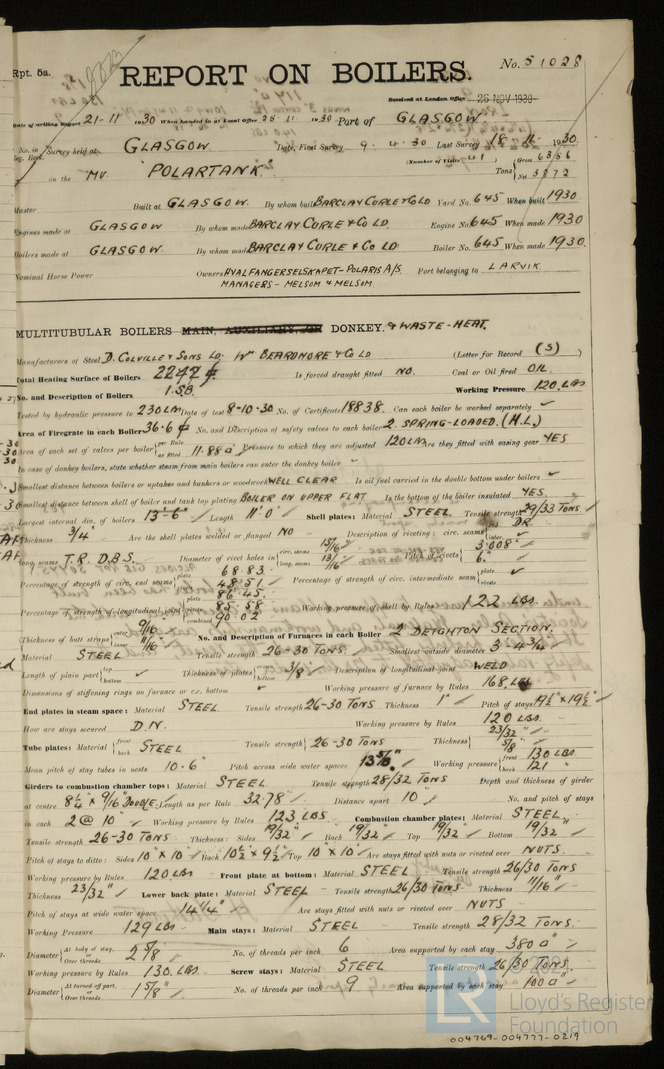 Rpt. 5a.
REPORT ON BOILERS.
No. 51028
Received at London Office 26 NOV 1930
Date of writing Report 21-11 1930 When handed in at Local Office 25-11 1930 Port of GLASGOW
No. in Survey held at GLASGOW Date, First Survey 9. 4. 30 Last Survey 18 . 11 . 1930
Reg. Book. (Number of Visits 41)
on the MV "POLARTANK" Tons { Gross 6356 Net 3872
Master Built at GLASGOW. By whom built BARCLAY CURLE & Co LD Yard No. 645 When built 1930
Engines made at GLASGOW By whom made BARCLAY CURLE & Co LD. Engine No. 645 When made 1930
Boilers made at GLASGOW By whom made BARCLAY CURLE & Co LD Boiler No. 645 When made 1930.
Nominal Horse Power Owners HVALFANGERSELSKAPET-POLARIS A/S Port belonging to LARVIK
MANAGERS - MELSOM & MELSOM.
MULTITUBULAR BOILERS MAIN, AUXILIARY, OR DONKEY. & WASTE-HEAT.
Manufacturers of Steel D. COLVILLE & SONS LD. Wm BEARDMORE & Co LD (Letter for Record (S) )
Total Heating Surface of Boilers 2247 ф. Is forced draught fitted NO. Coal or Oil fired OIL.
No. and Description of Boilers 1. S.B. Working Pressure 120 LBS
Tested by hydraulic pressure to 230 LBS Date of test 8-10-30 No. of Certificate 18838. Can each boiler be worked separately ✓
Area of Firegrate in each Boiler 36.6 ф No. and Description of safety valves to each boiler 2 SPRING-LOADED. (H.L.)
Area of each set of valves per boiler { per Rule as fitted 11.88 □" Pressure to which they are adjusted 120 LBS Are they fitted with easing gear YES
In case of donkey boilers, state whether steam from main boilers can enter the donkey boiler ✓
Smallest distance between boilers or uptakes and bunkers or woodwork WELL CLEAR Is oil fuel carried in the double bottom under boilers ✓
Smallest distance between shell of boiler and tank top plating BOILER ON UPPER FLAT Is the bottom of the boiler insulated YES.
Largest internal dia. of boilers 13'-6" Length 11'0" Shell plates: Material STEEL Tensile strength 29/33 TONS
Thickness 3/4" Are the shell plates welded or flanged NO Description of riveting: circ. seams { end DR. inter. ✓
long. seams T.R. D.B.S. Diameter of rivet holes in { circ. seams 15/16" long. seams 13/16" Pitch of rivets { 3.008" 6"
Percentage of strength of circ. end seams { plate 68.83 rivets 48.51 Percentage of strength of circ. intermediate seam { plate ✓ rivets
Percentage of strength of longitudinal joint { plate 86.45. rivets 85.58 combined 90.02 Working pressure of shell by Rules 122 LBS.
Thickness of butt straps { outer 9/16" inner 11/16" No. and Description of Furnaces in each Boiler 2 DEIGHTON SECTION.
Material STEEL Tensile strength 26-30 TONS Smallest outside diameter 3'-4 3/4"
Length of plain part { top bottom ✓ Thickness of plates { crown bottom 3/8" Description of longitudinal joint WELD
Dimensions of stiffening rings on furnace or c.c. bottom ✓ Working pressure of furnace by Rules 168 LBS
End plates in steam space: Material STEEL Tensile strength 26-30 TONS Thickness 1" Pitch of stays 19½" x 19½"
How are stays secured D.N. Working pressure by Rules 120 LBS.
Tube plates: Material { front back STEEL Tensile strength { 26-30 TONS Thickness { 23/32" 5/8"
Mean pitch of stay tubes in nests 10.6" Pitch across wide water spaces 13⅝" Working pressure { front 130 LBS back 121 "
Girders to combustion chamber tops: Material STEEL Tensile strength 28/32 TONS Depth and thickness of girder
at centre 8¼" x 9/16" DOUBLE. Length as per Rule 32.78" Distance apart 10" No. and pitch of stays
in each 2 @ 10" Working pressure by Rules 123 LBS. Combustion chamber plates: Material STEEL
Tensile strength 26-30 TONS Thickness: Sides 19/32" Back 19/32" Top 19/32" Bottom 19/32"
Pitch of stays to ditto: Sides 10" x 10" Back 10½ x 9½ Top 10" x 10" Are stays fitted with nuts or riveted over NUTS.
Working pressure by Rules 120 LBS Front plate at bottom: Material STEEL Tensile strength 26/30 TONS
Thickness 23/32" Lower back plate: Material STEEL Tensile strength 26/30 TONS Thickness 11/16"
Pitch of stays at wide water space 14¼" Are stays fitted with nuts or riveted over NUTS
Working Pressure 129 LBS Main stays: Material STEEL Tensile strength 28/32 TONS.
Diameter { At body of stay, or Over threads 2⅝" No. of threads per inch 6 Area supported by each stay 380 □"
Working pressure by Rules 130. LBS Screw stays: Material STEEL Tensile strength 26/30 TONS.
Diameter { At turned off part, or Over threads 1⅝" No. of threads per inch 9 Area supported by each stay 100 □"
Lloyd's Register
Foundation
004769-004777-0219